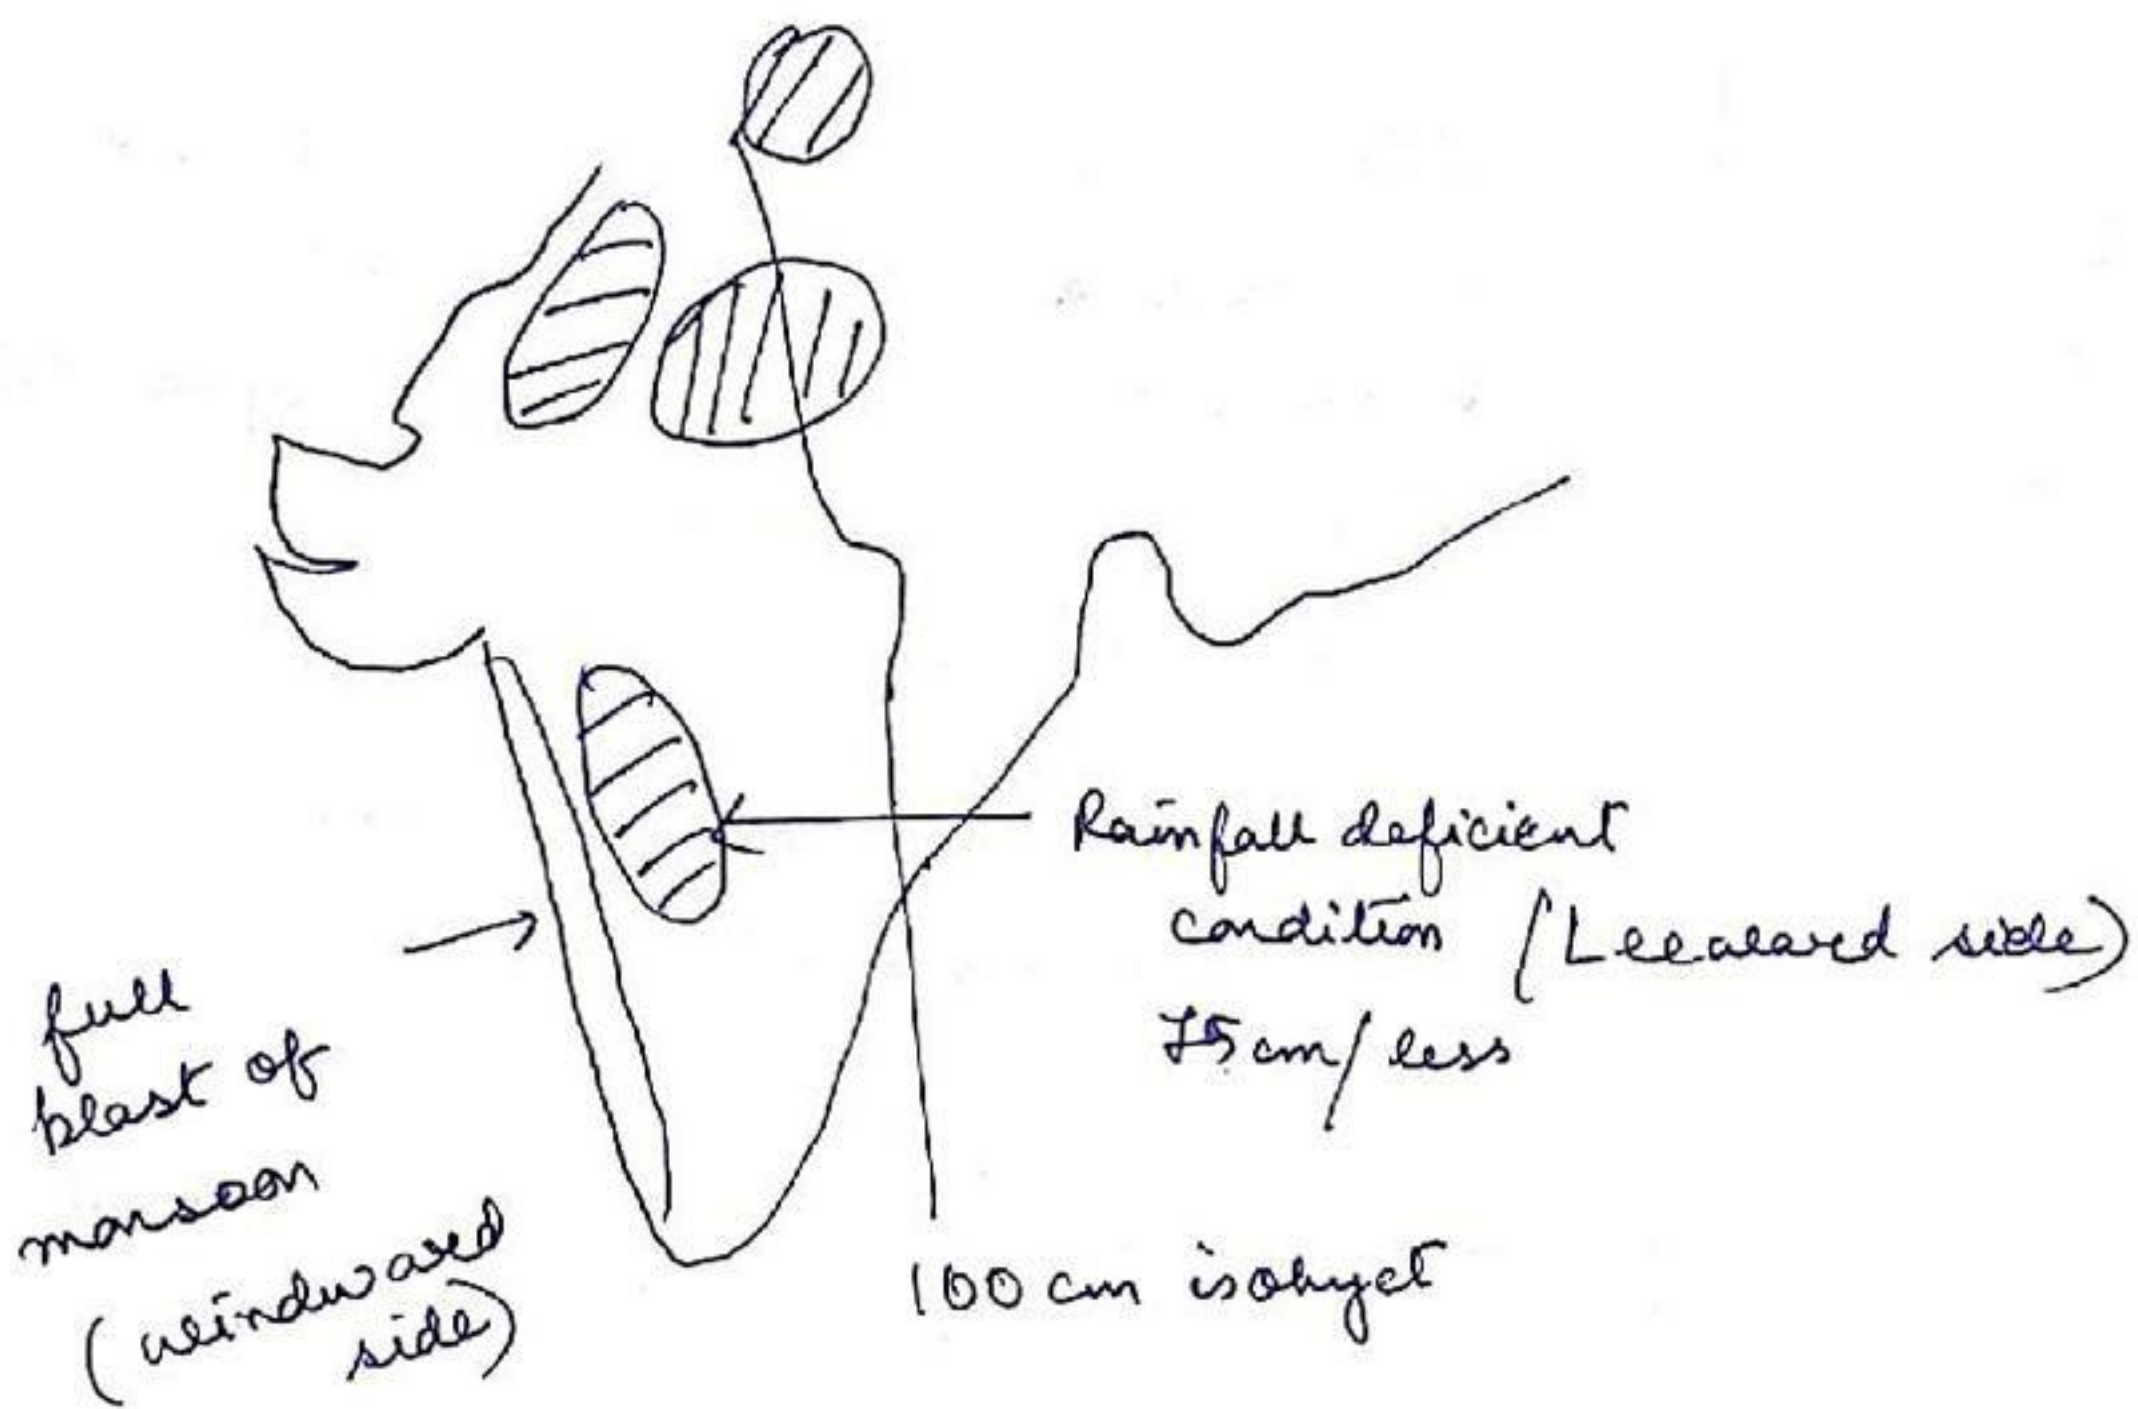 Rainfall deficient
condition (Leeward side)
75 cm/less
full
blast of
monsoon
(windward
side)
100 cm isohyet